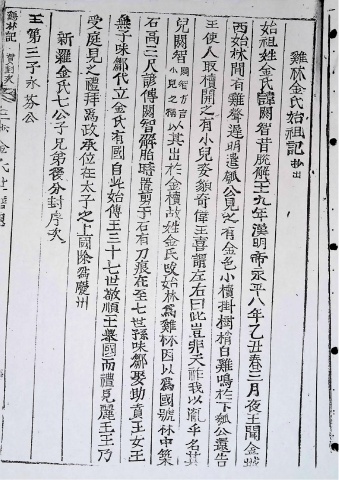 雞林金氏始祖記 抄出
始祖姓金氏諱閼智昔脫解王九年漢明帝永平八年乙丑春三月夜王聞金城
西始林間有雞聲遲明遣瓠公見之有金色小櫝掛樹梢白雞鳴於下瓠公還告
王使人取櫝開之有小兒姿貌奇偉王喜謂左右曰此豈非天祚我以胤乎名其
兒閼智 閼智方言小兒之稱 以其出於金櫝故姓金氏改始林爲雞林因以爲國號林中築
石高三尺諺傳閼智解胎時置剪于石有刀痕在至七世孫味鄒娶助賁王女王
無子味鄒代立金氏有國自此始傳王三十七世敬順王擧國而禮見麗王王乃
受庭見之禮拜爲政丞位在太子之上國除爲慶州
新羅金氏七公子兄弟後分封序次
王第三子永芬公